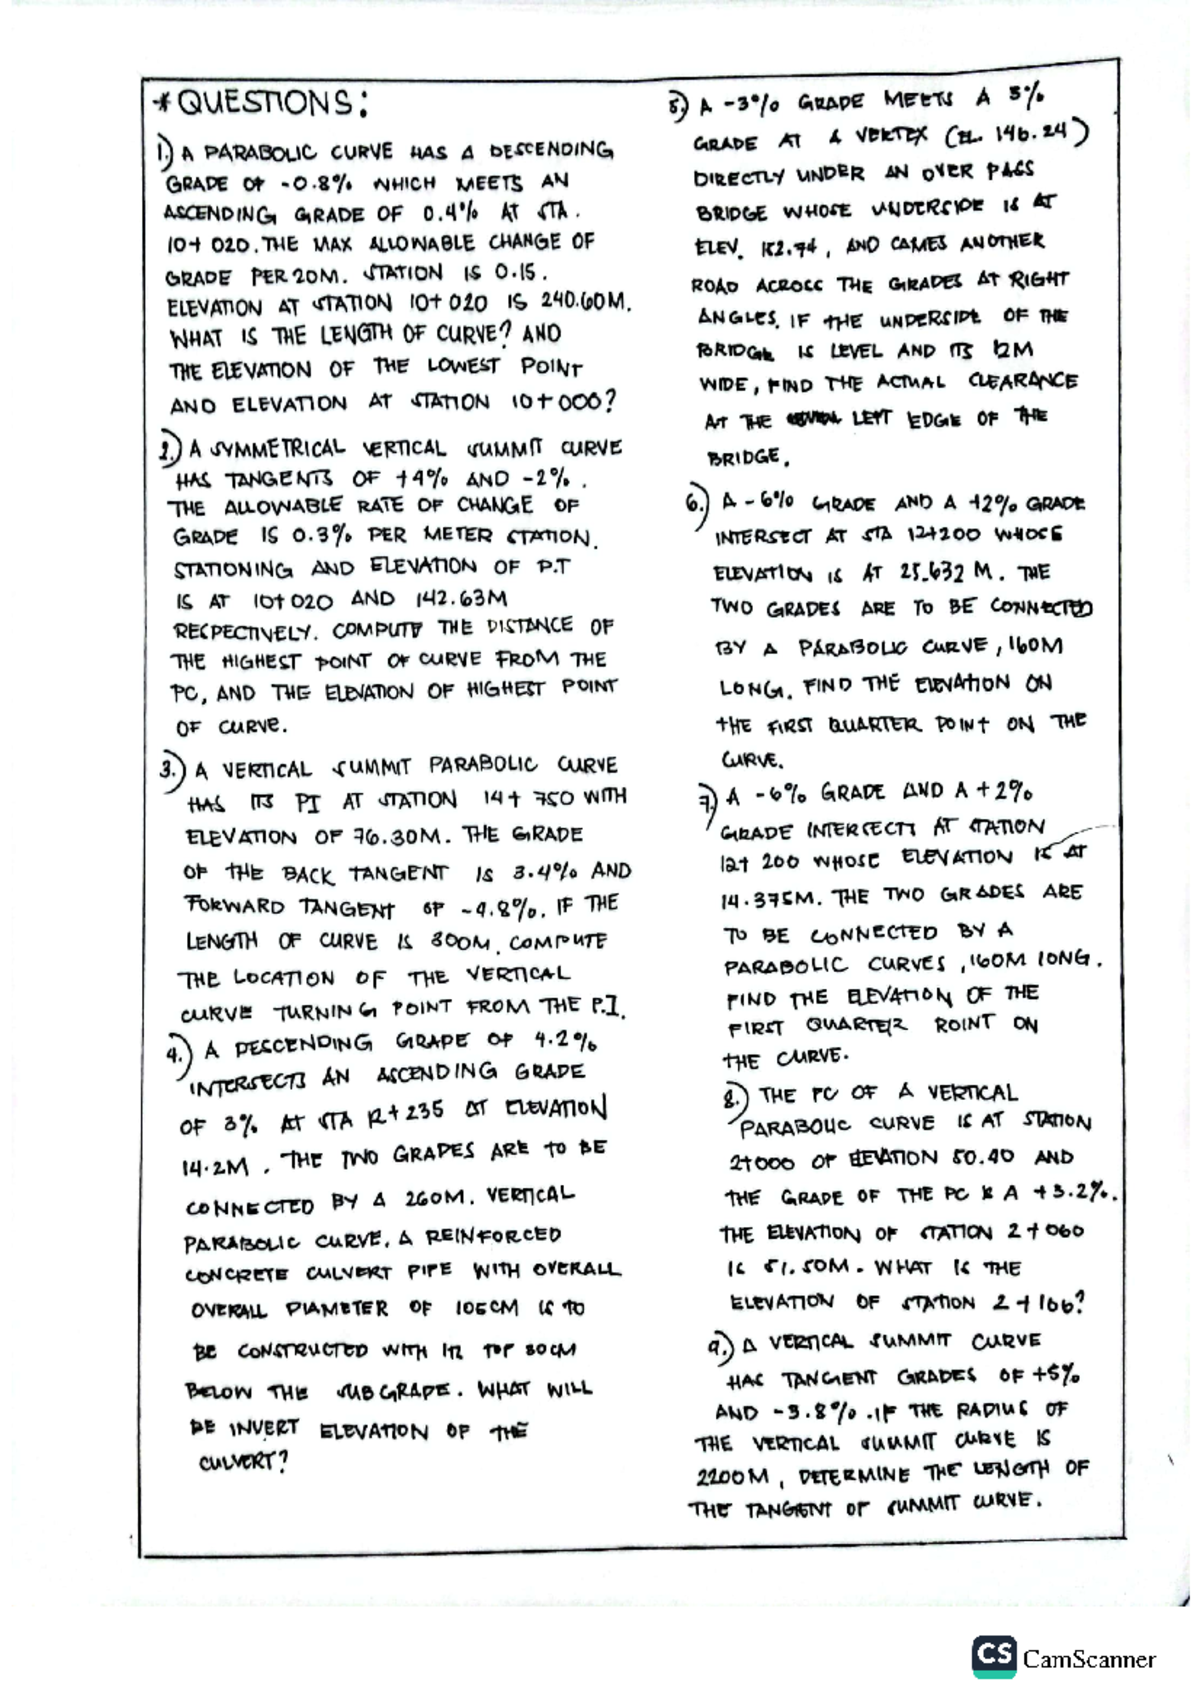 * QUESTIONS:
1.) A PARABOLIC CURVE HAS A DESCENDING
GRADE OF -0.8% WHICH MEETS AN
ASCENDING GRADE OF 0.4% AT STA.
10+020. THE MAX ALLOWABLE CHANGE OF
GRADE PER 20M. STATION IS 0.15.
ELEVATION AT STATION 10+020 IS 240.60M.
WHAT IS THE LENGTH OF CURVE? AND
THE ELEVATION OF THE LOWEST POINT
AND ELEVATION AT STATION 10+000?
2.) A SYMMETRICAL VERTICAL SUMMIT CURVE
HAS TANGENTS OF +4% AND -2%.
THE ALLOWABLE RATE OF CHANGE OF
GRADE IS 0.3% PER METER STATION.
STATIONING AND ELEVATION OF P.T
IS AT 10+020 AND 142.63M
RESPECTIVELY. COMPUTE THE DISTANCE OF
THE HIGHEST POINT OF CURVE FROM THE
PC, AND THE ELEVATION OF HIGHEST POINT
OF CURVE.
3.) A VERTICAL SUMMIT PARABOLIC CURVE
HAS ITS PI AT STATION 14+750 WITH
ELEVATION OF 76.30M. THE GRADE
OF THE BACK TANGENT IS 3.4% AND
FORWARD TANGENT OF -4.8%. IF THE
LENGTH OF CURVE IS 300M. COMPUTE
THE LOCATION OF THE VERTICAL
CURVE TURNING POINT FROM THE P.I.
4.) A DESCENDING GRADE OF 4.2%
INTERSECTS AN ASCENDING GRADE
OF 3% AT STA 12+235 AT ELEVATION
14.2M. THE TWO GRADES ARE TO BE
CONNECTED BY A 260M. VERTICAL
PARABOLIC CURVE. A REINFORCED
CONCRETE CULVERT PIPE WITH OVERALL
OVERALL DIAMETER OF 105CM IS TO
BE CONSTRUCTED WITH ITS TOP 30CM
BELOW THE SUBGRADE. WHAT WILL
BE INVERT ELEVATION OF THE
CULVERT?
5.) A -3% GRADE MEETS A 5%
GRADE AT A VERTEX (EL. 146.24)
DIRECTLY UNDER AN OVER PASS
BRIDGE WHOSE UNDERSIDE IS AT
ELEV. 152.74, AND CAMES ANOTHER
ROAD ACROSS THE GRADES AT RIGHT
ANGLES. IF THE UNDERSIDE OF THE
BRIDGE IS LEVEL AND ITS 12M
WIDE, FIND THE ACTUAL CLEARANCE
AT THE LEFT EDGE OF THE
BRIDGE.
6.) A -6% GRADE AND A +2% GRADE
INTERSECT AT STA 12+200 WHOSE
ELEVATION IS AT 25.632 M. THE
TWO GRADES ARE TO BE CONNECTED
BY A PARABOLIC CURVE, 160M
LONG. FIND THE ELEVATION ON
THE FIRST QUARTER POINT ON THE
CURVE.
7.) A -6% GRADE AND A +2%
GRADE INTERSECTS AT STATION
12+200 WHOSE ELEVATION IS AT
14.375M. THE TWO GRADES ARE
TO BE CONNECTED BY A
PARABOLIC CURVES, 160M LONG.
FIND THE ELEVATION OF THE
FIRST QUARTER POINT ON
THE CURVE.
8.) THE PC OF A VERTICAL
PARABOLIC CURVE IS AT STATION
2+000 OF ELEVATION 50.40 AND
THE GRADE OF THE PC IS A +3.2%.
THE ELEVATION OF STATION 2+060
IS 51.50M. WHAT IS THE
ELEVATION OF STATION 2+166?
9.) A VERTICAL SUMMIT CURVE
HAS TANGENT GRADES OF +5%
AND -3.8%. IF THE RADIUS OF
THE VERTICAL SUMMIT CURVE IS
2200M, DETERMINE THE LENGTH OF
THE TANGENT OF SUMMIT CURVE.
CS CamScanner